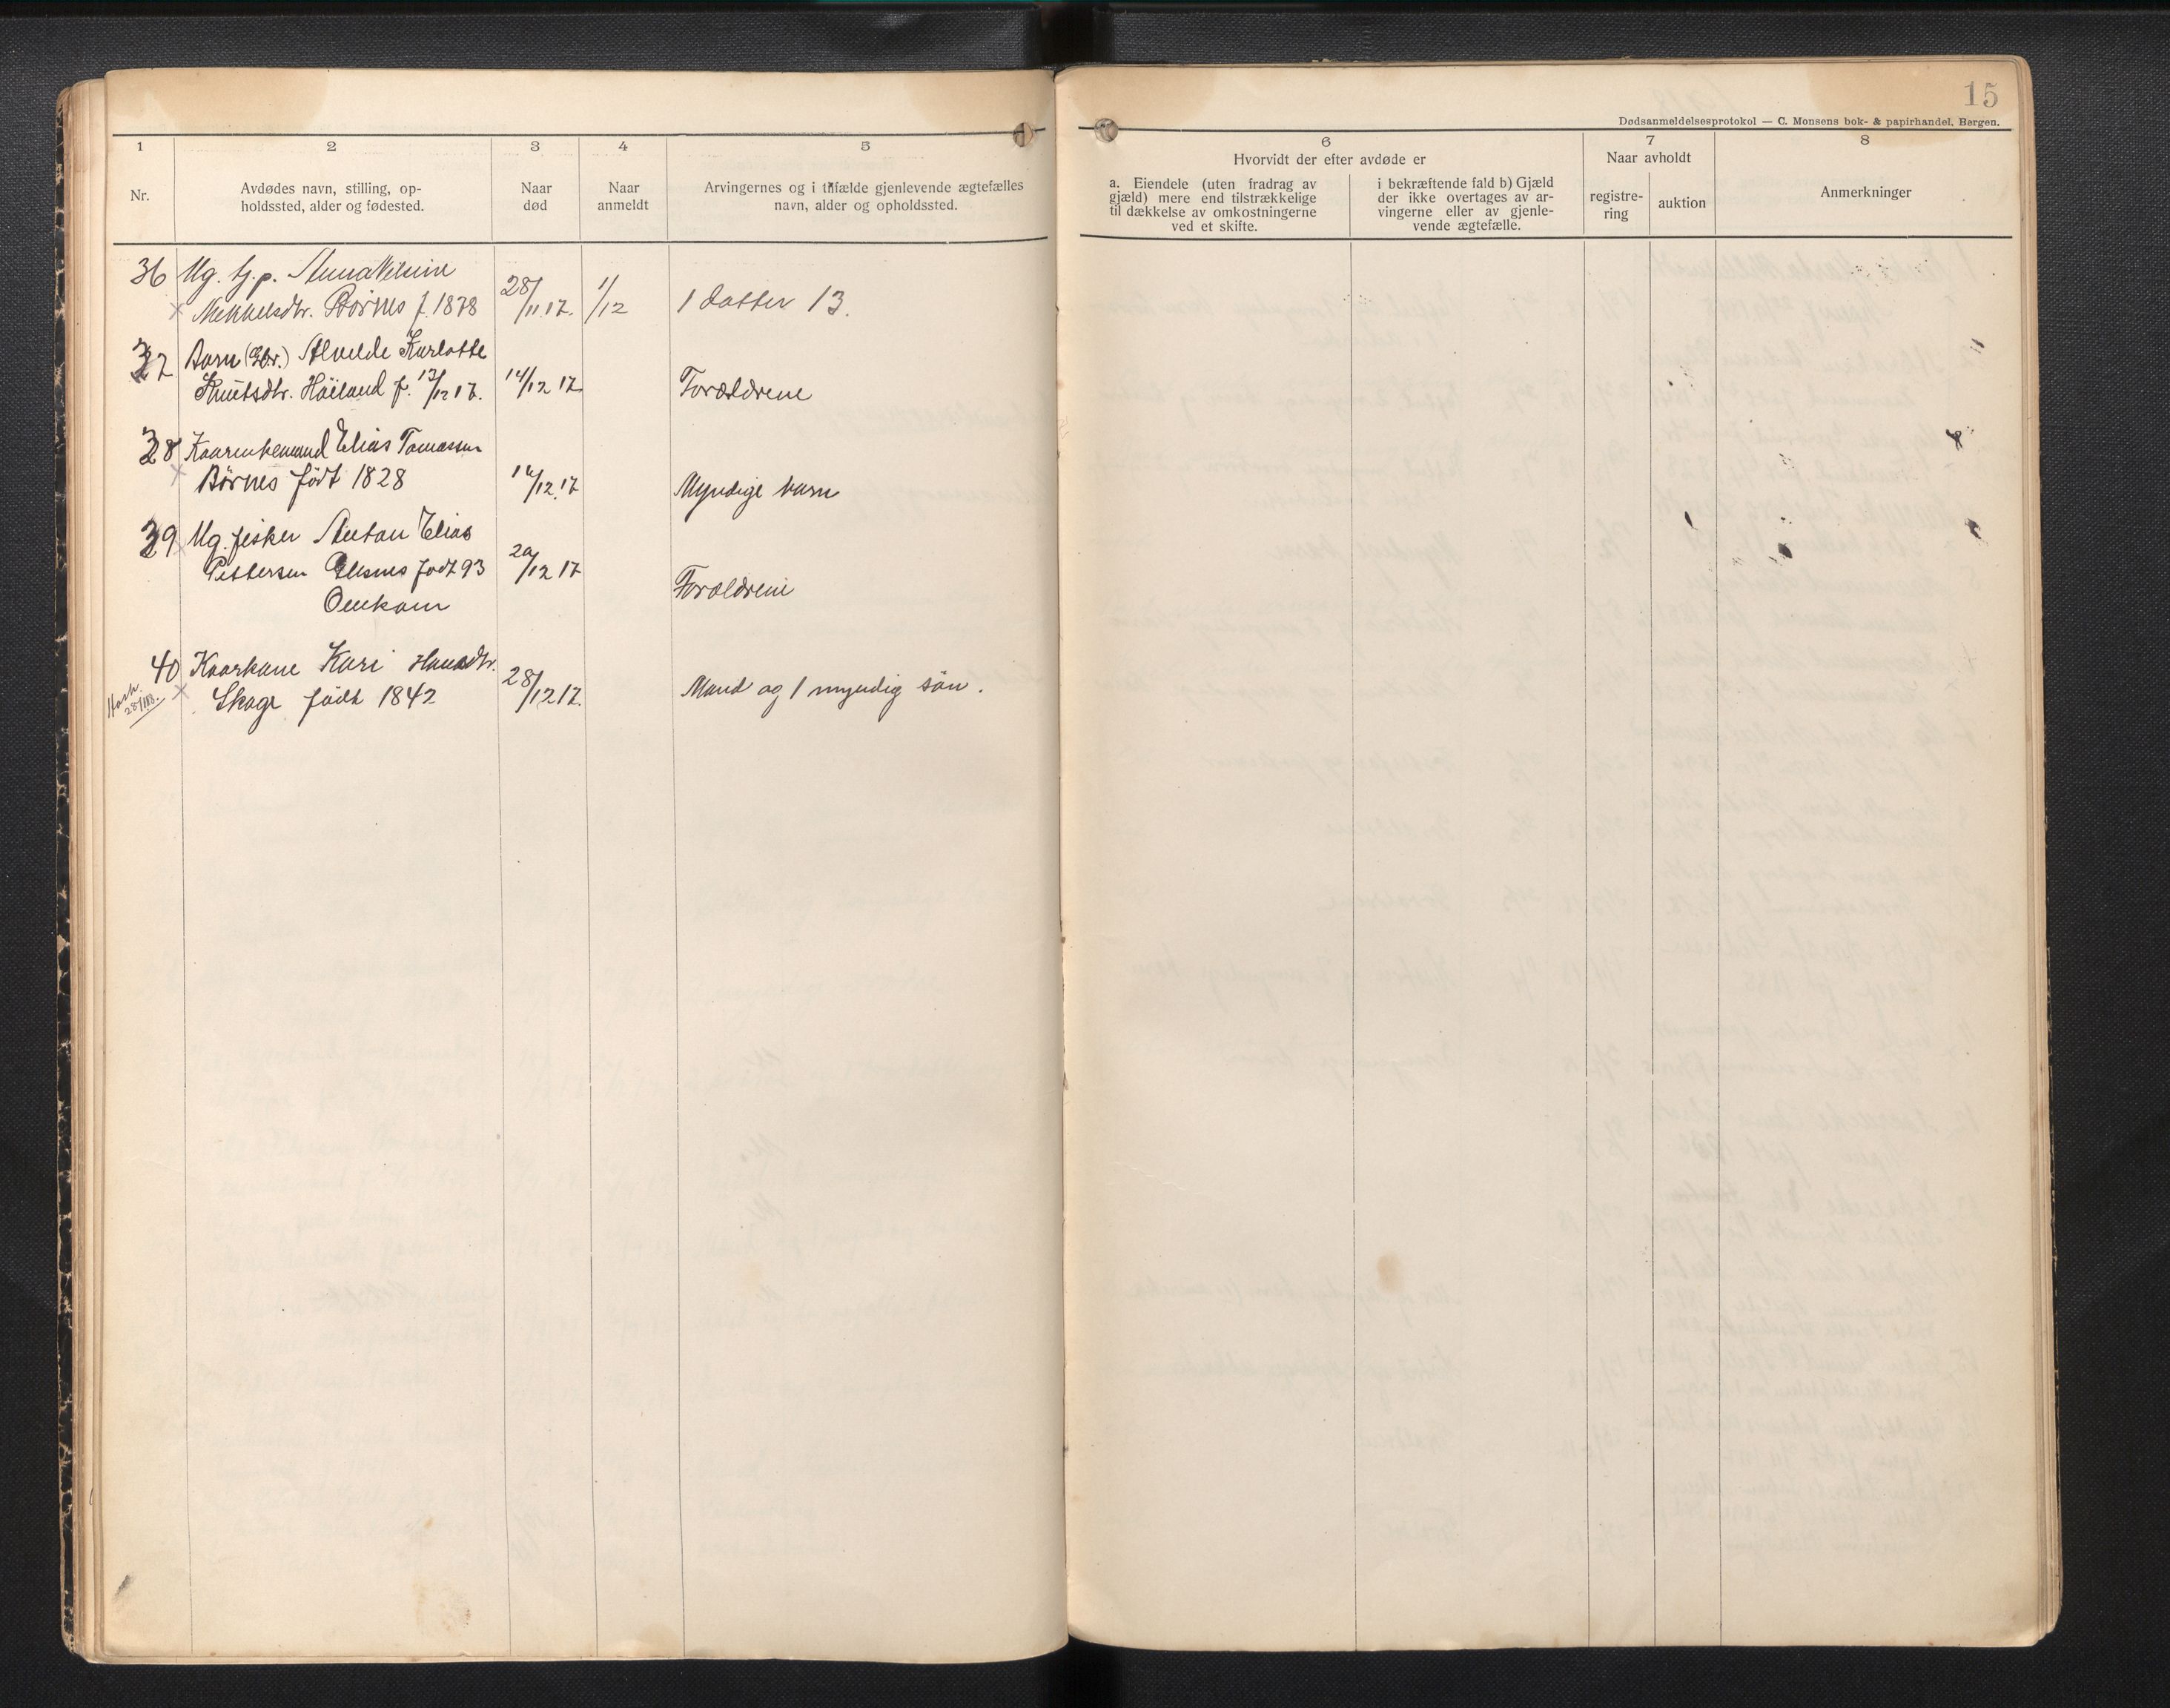 15
Dødsanmeldelsesprotokol — C. Monsens bok- & papirhandel, Bergen.
1
2
3
4
5
Nr.
Avdødes navn, stilling, op-
holdssted, alder og fødested.
Naar
død
Naar
anmeldt
Arvingernes og i tilfælde gjenlevende ægtefælles
navn, alder og opholdssted.
6
7
8
Hvorvidt der efter avdøde er
a. Eiendele (uten fradrag av
gjæld) mere end tilstrækkelige
til dækkelse av omkostningerne
ved et skifte.
i bekræftende fald b) Gjæld
der ikke overtages av ar-
vingerne eller av gjenle-
vende ægtefælle.
Naar avholdt
registre-
ring
auktion
Anmerkninger
36 Ug. tj.p. Anna
Mekkelsdtr. Börnes f. 1878 28/11 17. 1/12 1 datter 13.
37 Barn Karlotte
Knutsdtr. Höiland f. 13/12 17. 14/12 17 Forældrene
38 Kaarenkemand Elias Tomassen
Börnes født 1828 /12 17 Myndige barn
39 Ug. fisker Anton Elias
Pettersen født 93 20/12 17
Omkom Forældrene
40 Kaarkone Kari Hansdtr.
Skage född 1842 28/12 17. Mand og 1 myndig sön.